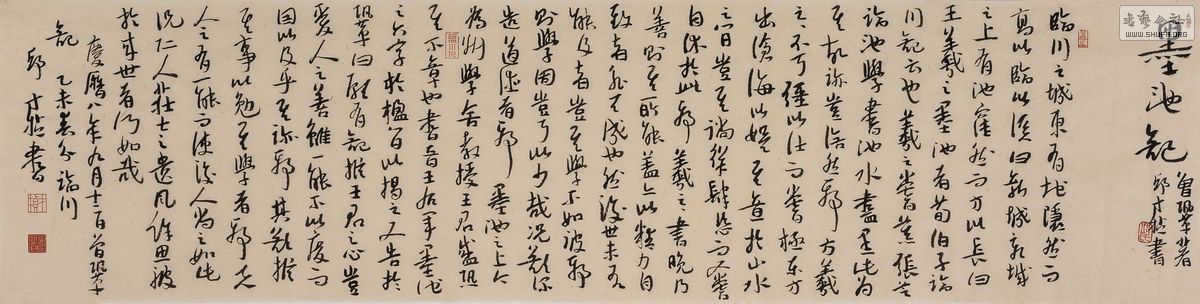 墨池記
曾鞏著
邱才楨書
臨川之城東有地隱然而
高以臨於溪曰新城新城
之上有池窪然而方以長曰
王羲之之墨池者荀伯子臨
川記云也羲之嘗慕張芝
臨池學書池水盡黑此為
其故跡豈信然邪方羲
之之不可強以仕而嘗極東方
出滄海以娛其意於山水
之間豈其徜徉肆恣而又嘗
自休於此邪羲之之書晚乃
善則其所能蓋亦以精力自
致者非天成也然後世未有
能及者豈其學不如彼邪
則學固豈可以少哉況欲深
造道德者邪墨池之上今
為州學舍教授王君盛恐
其不章也書晉王右軍墨池
之六字於楹間以揭之又告於
鞏曰願有記推王君之心豈
愛人之善雖一能不以廢而
因以及乎其跡邪其欲推
其事以勉其學者邪夫
人之有一能而使後人尚之如此
況仁人莊士之遺風餘思被
於來世者何如哉
慶曆八年九月十二日曾鞏
記 乙未春分臨川
邱才楨書
WWW.SHUFA.ORG